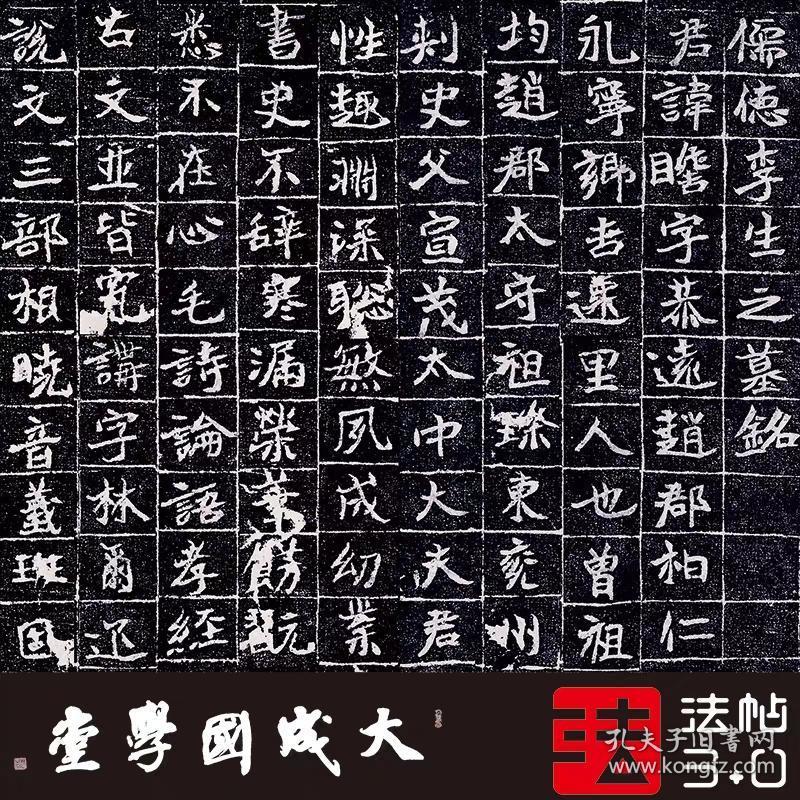 儒德李生之墓銘
君諱瞻字恭遠趙郡柏仁
永寧鄉吉里人也曾祖
均趙郡太守祖璨東兗州
刺史父宣茂太中大夫君
性趣淵深聡煞夙成幼業
書史不辞寒漏
悉不在心毛詩論語孝經
古文並皆究講字林爾
說文三部相曉音義班固
大成國學堂
法帖
孔夫子旧书网
www.kongfz.com